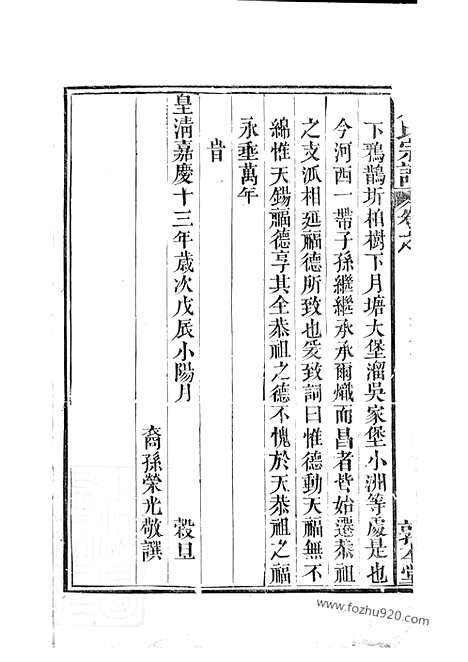 下鵶鵲圻柏樹下月塘大堡溜吳家堡小洲等處是也
今河西一帶子孫繼繼承承爾熾而昌者皆始遷恭祖
之支派相延福德所致也爰致詞曰惟德動天福無不
綿惟天錫福德享其全恭祖之德不愧於天恭祖之福
永垂萬年
旹
皇清嘉慶十三年歲次戊辰小陽月 穀旦
裔孫榮光敬譔
氏宗譜 卷之
www.fozhu920.com